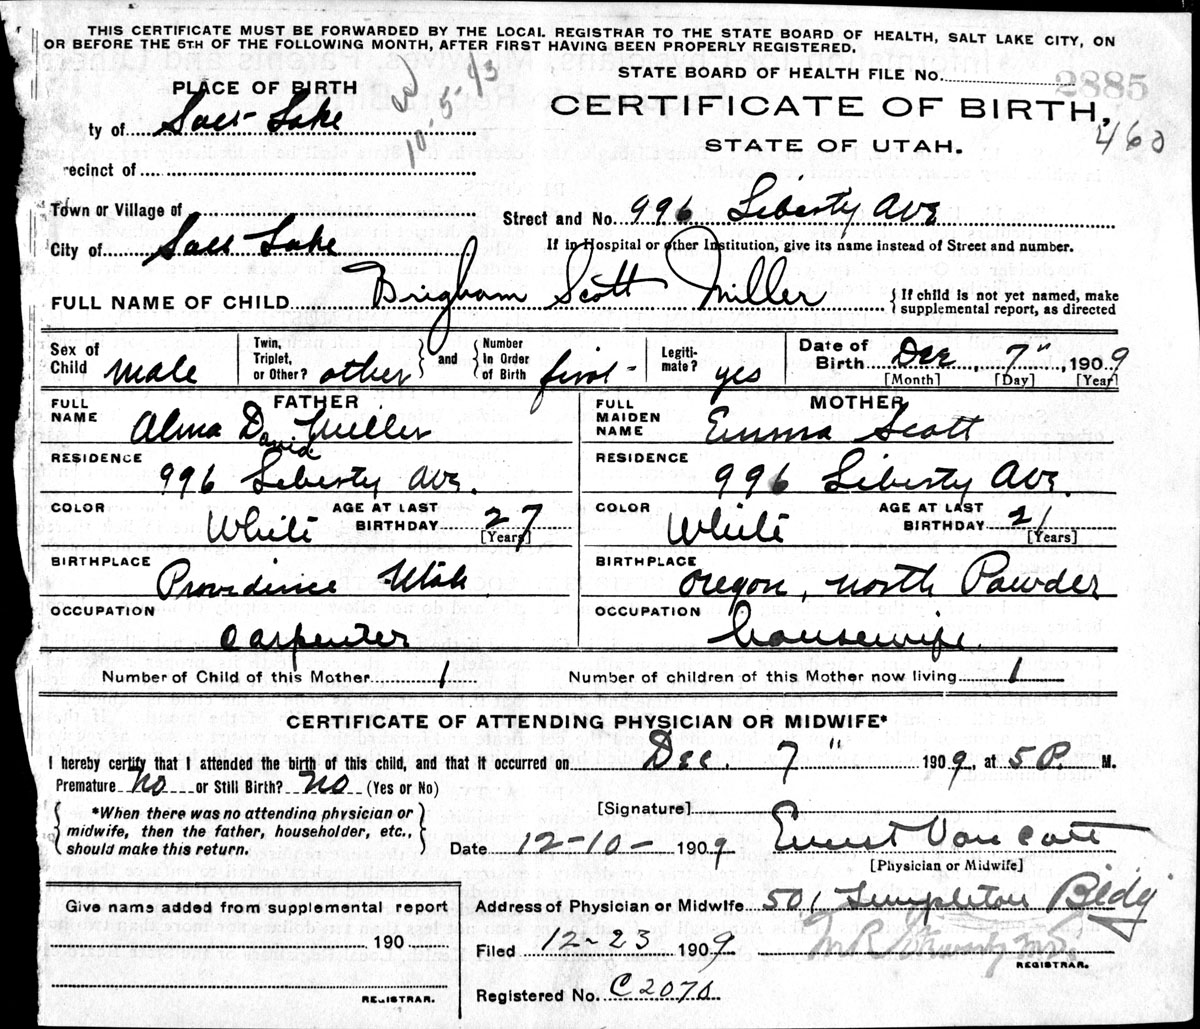 THIS CERTIFICATE MUST BE FORWARDED BY THE LOCAL REGISTRAR TO THE STATE BOARD OF HEALTH, SALT LAKE CITY, ON
OR BEFORE THE 5TH OF THE FOLLOWING MONTH, AFTER FIRST HAVING BEEN PROPERLY REGISTERED.
STATE BOARD OF HEALTH FILE No.
2885
PLACE OF BIRTH
10-5-43
CERTIFICATE OF BIRTH,
460
ty of Salt Lake
STATE OF UTAH.
recinct of
Town or Village of
Street and No. 996 Liberty Ave
City of Salt Lake
If in Hospital or other Institution, give its name instead of Street and number.
FULL NAME OF CHILD Brigham Scott Miller
{If child is not yet named, make supplemental report, as directed
Sex of Child male
Twin, Triplet, or Other? other
and
Number in Order of Birth first
Legitimate? yes
Date of Birth Dec, 7", 1909
[Month] [Day] [Year]
FATHER
FULL NAME Alma David Miller
RESIDENCE 996 Liberty Ave.
COLOR White
AGE AT LAST BIRTHDAY 27 [Years]
BIRTHPLACE Providence Utah
OCCUPATION Carpenter
MOTHER
FULL MAIDEN NAME Emma Scott
RESIDENCE 996 Liberty Ave.
COLOR White
AGE AT LAST BIRTHDAY 21 [Years]
BIRTHPLACE Oregon, North Powder
OCCUPATION housewife.
Number of Child of this Mother 1
Number of children of this Mother now living 1
CERTIFICATE OF ATTENDING PHYSICIAN OR MIDWIFE*
I hereby certify that I attended the birth of this child, and that it occurred on Dec. 7" 1909, at 5 P. M.
Premature No or Still Birth? No (Yes or No)
*When there was no attending physician or
midwife, then the father, householder, etc.,
should make this return.
[Signature]
Date 12-10- 1909
Ernest Van Cott
[Physician or Midwife]
Give name added from supplemental report
190
REGISTRAR.
Address of Physician or Midwife 501 Templeton Bldg
Filed 12-23 1909
REGISTRAR.
Registered No. C2070